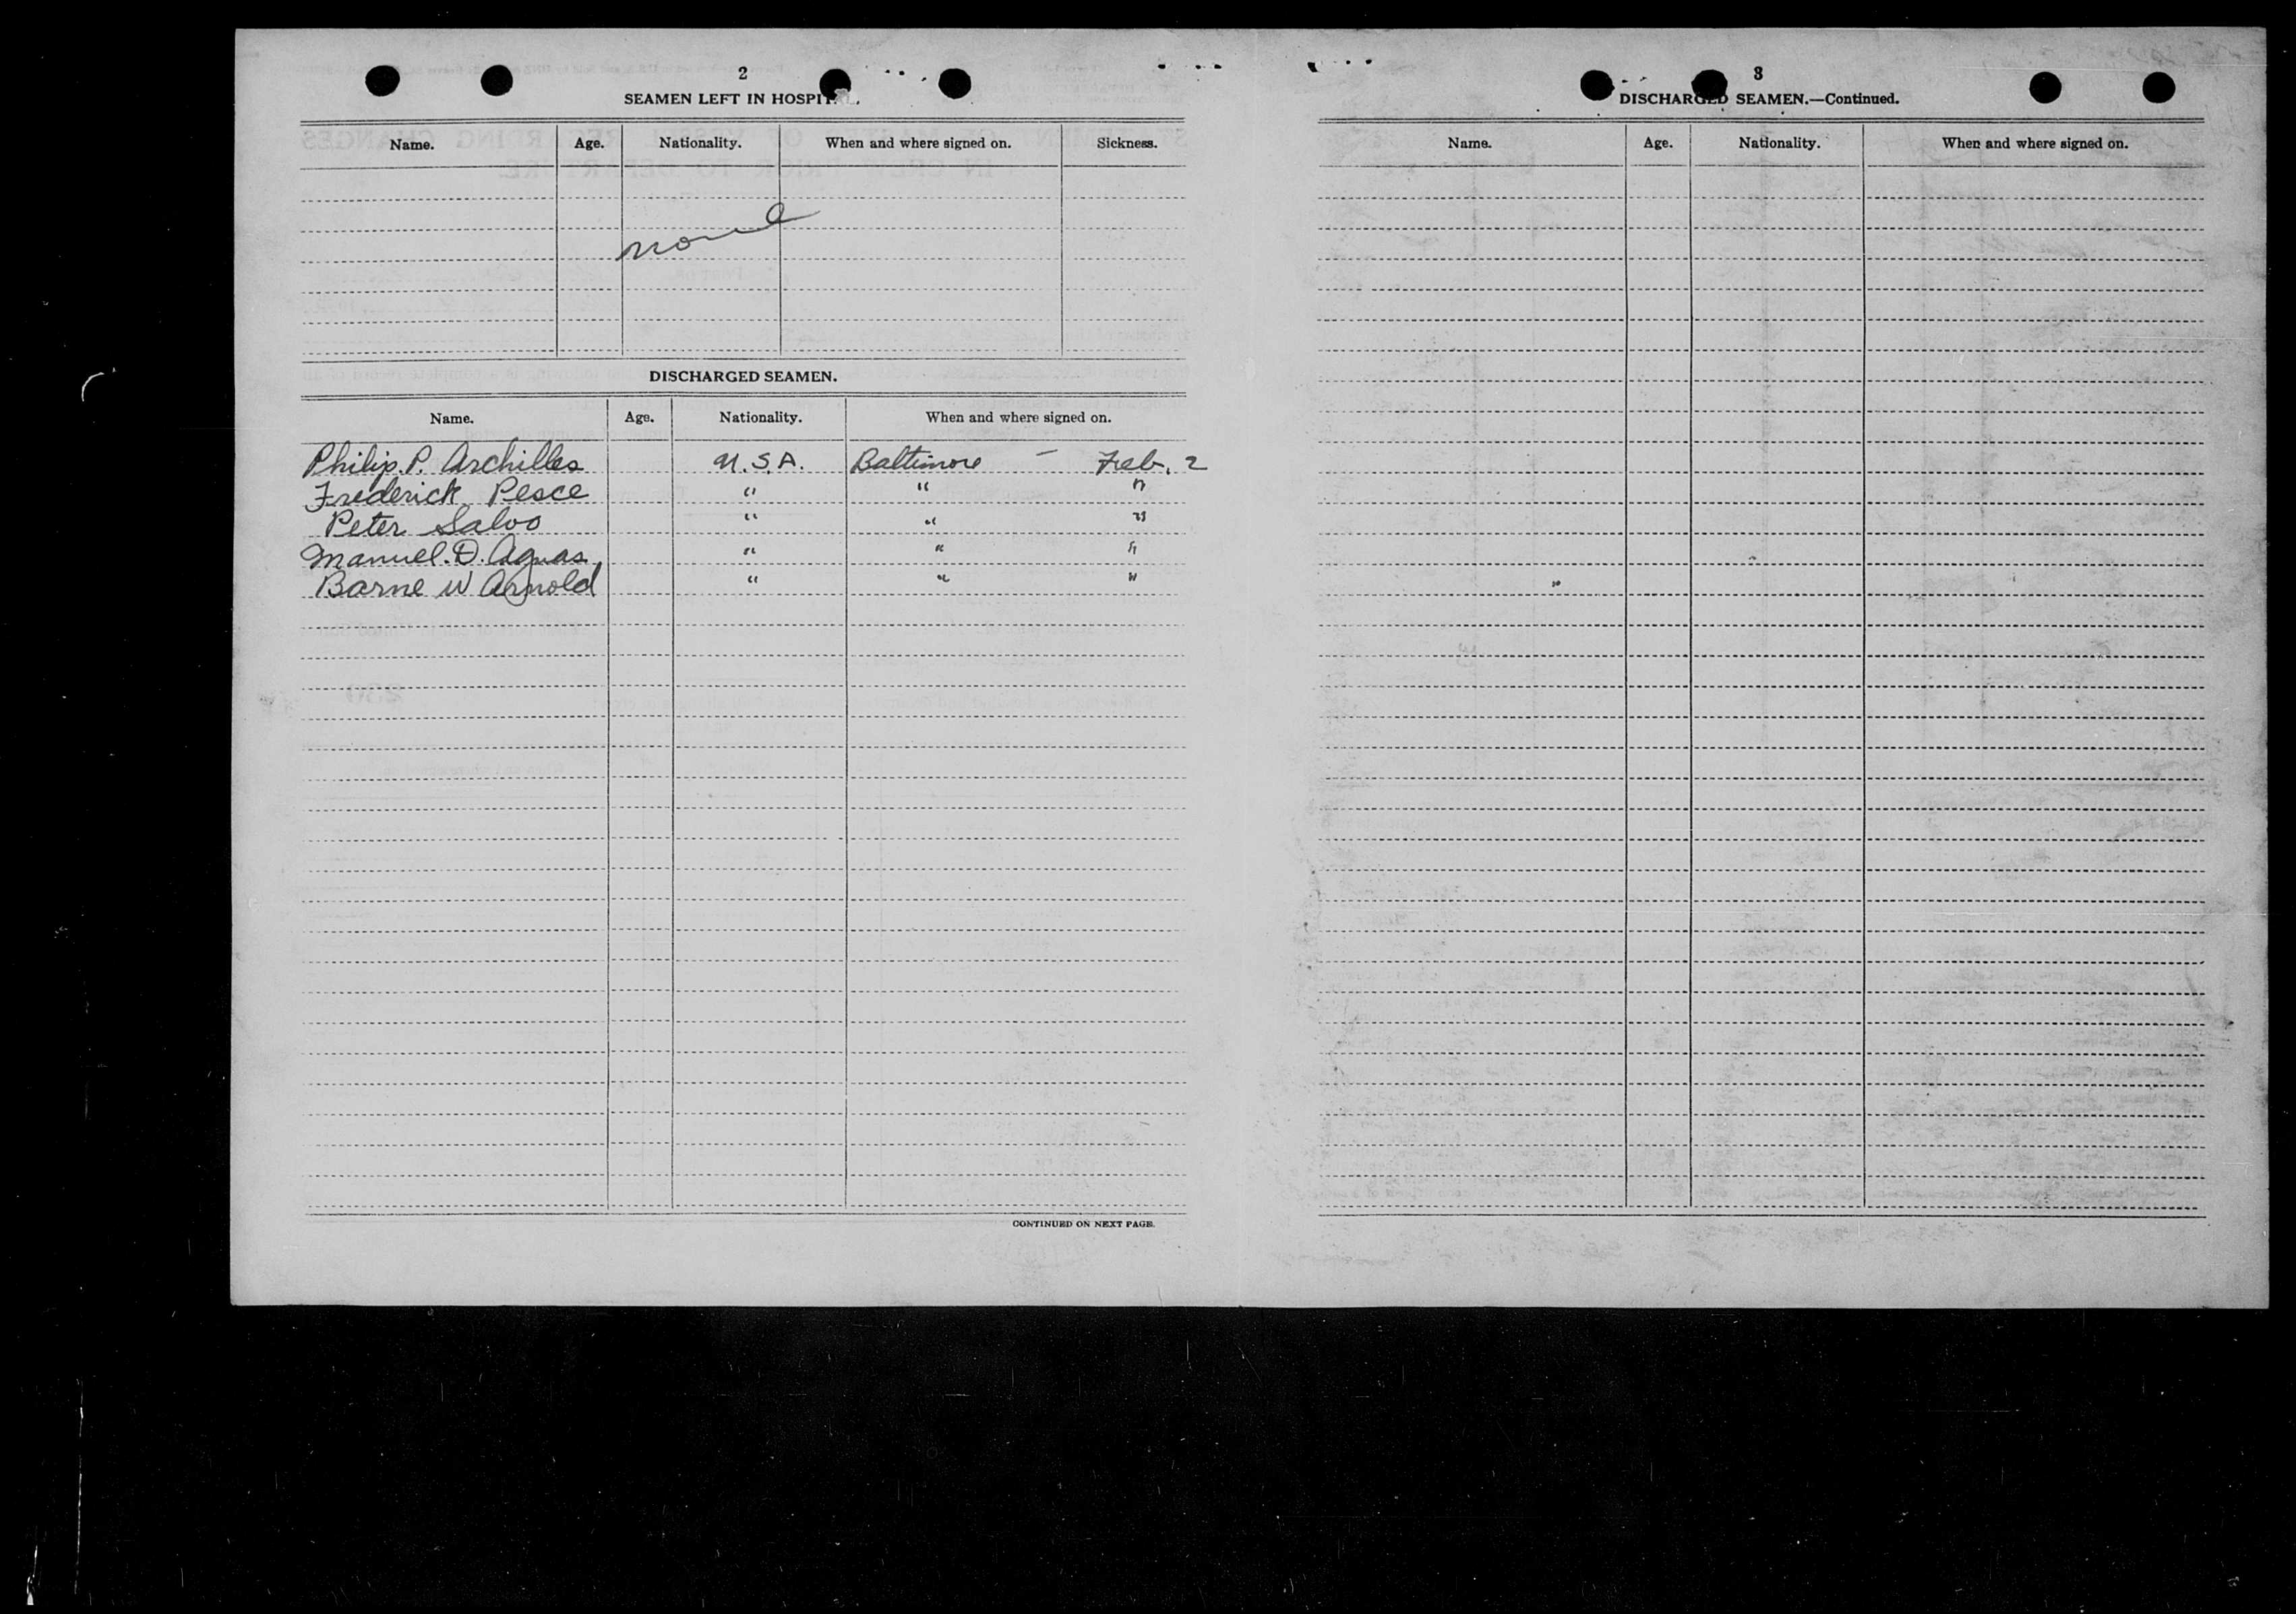 2
SEAMEN LEFT IN HOSPITAL.
Name. Age. Nationality. When and where signed on. Sickness.
None
DISCHARGED SEAMEN.
Name. Age. Nationality. When and where signed on.
Philip. P. Archilles U.S.A. Baltimore – Feb. 2
Frederick Pesce " " "
Peter Salvo " " "
Manuel. D. Aguas " " "
Barne W Arnold " " "
CONTINUED ON NEXT PAGE.
3
DISCHARGED SEAMEN.—Continued.
Name. Age. Nationality. When and where signed on.